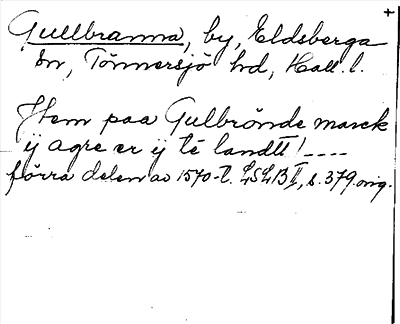 +
Gullbranna, by, Eldsberga
sn, Tönnersjö hd, Hall. l.
Jtem paa Gulbrönde marck
ij agre er ij te landtt! ----
förra delen av 1570-t. LSLB II, s. 379. orig.